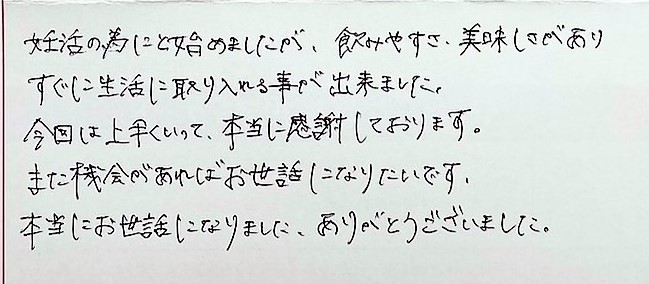 妊活の為にと始めましたが、飲みやすさ、美味しさがあり
すぐに生活に取り入れる事が出来ました。
今回は上手くいって、本当に感謝しております。
また機会があればお世話になりたいです。
本当にお世話になりました、ありがとうございました。